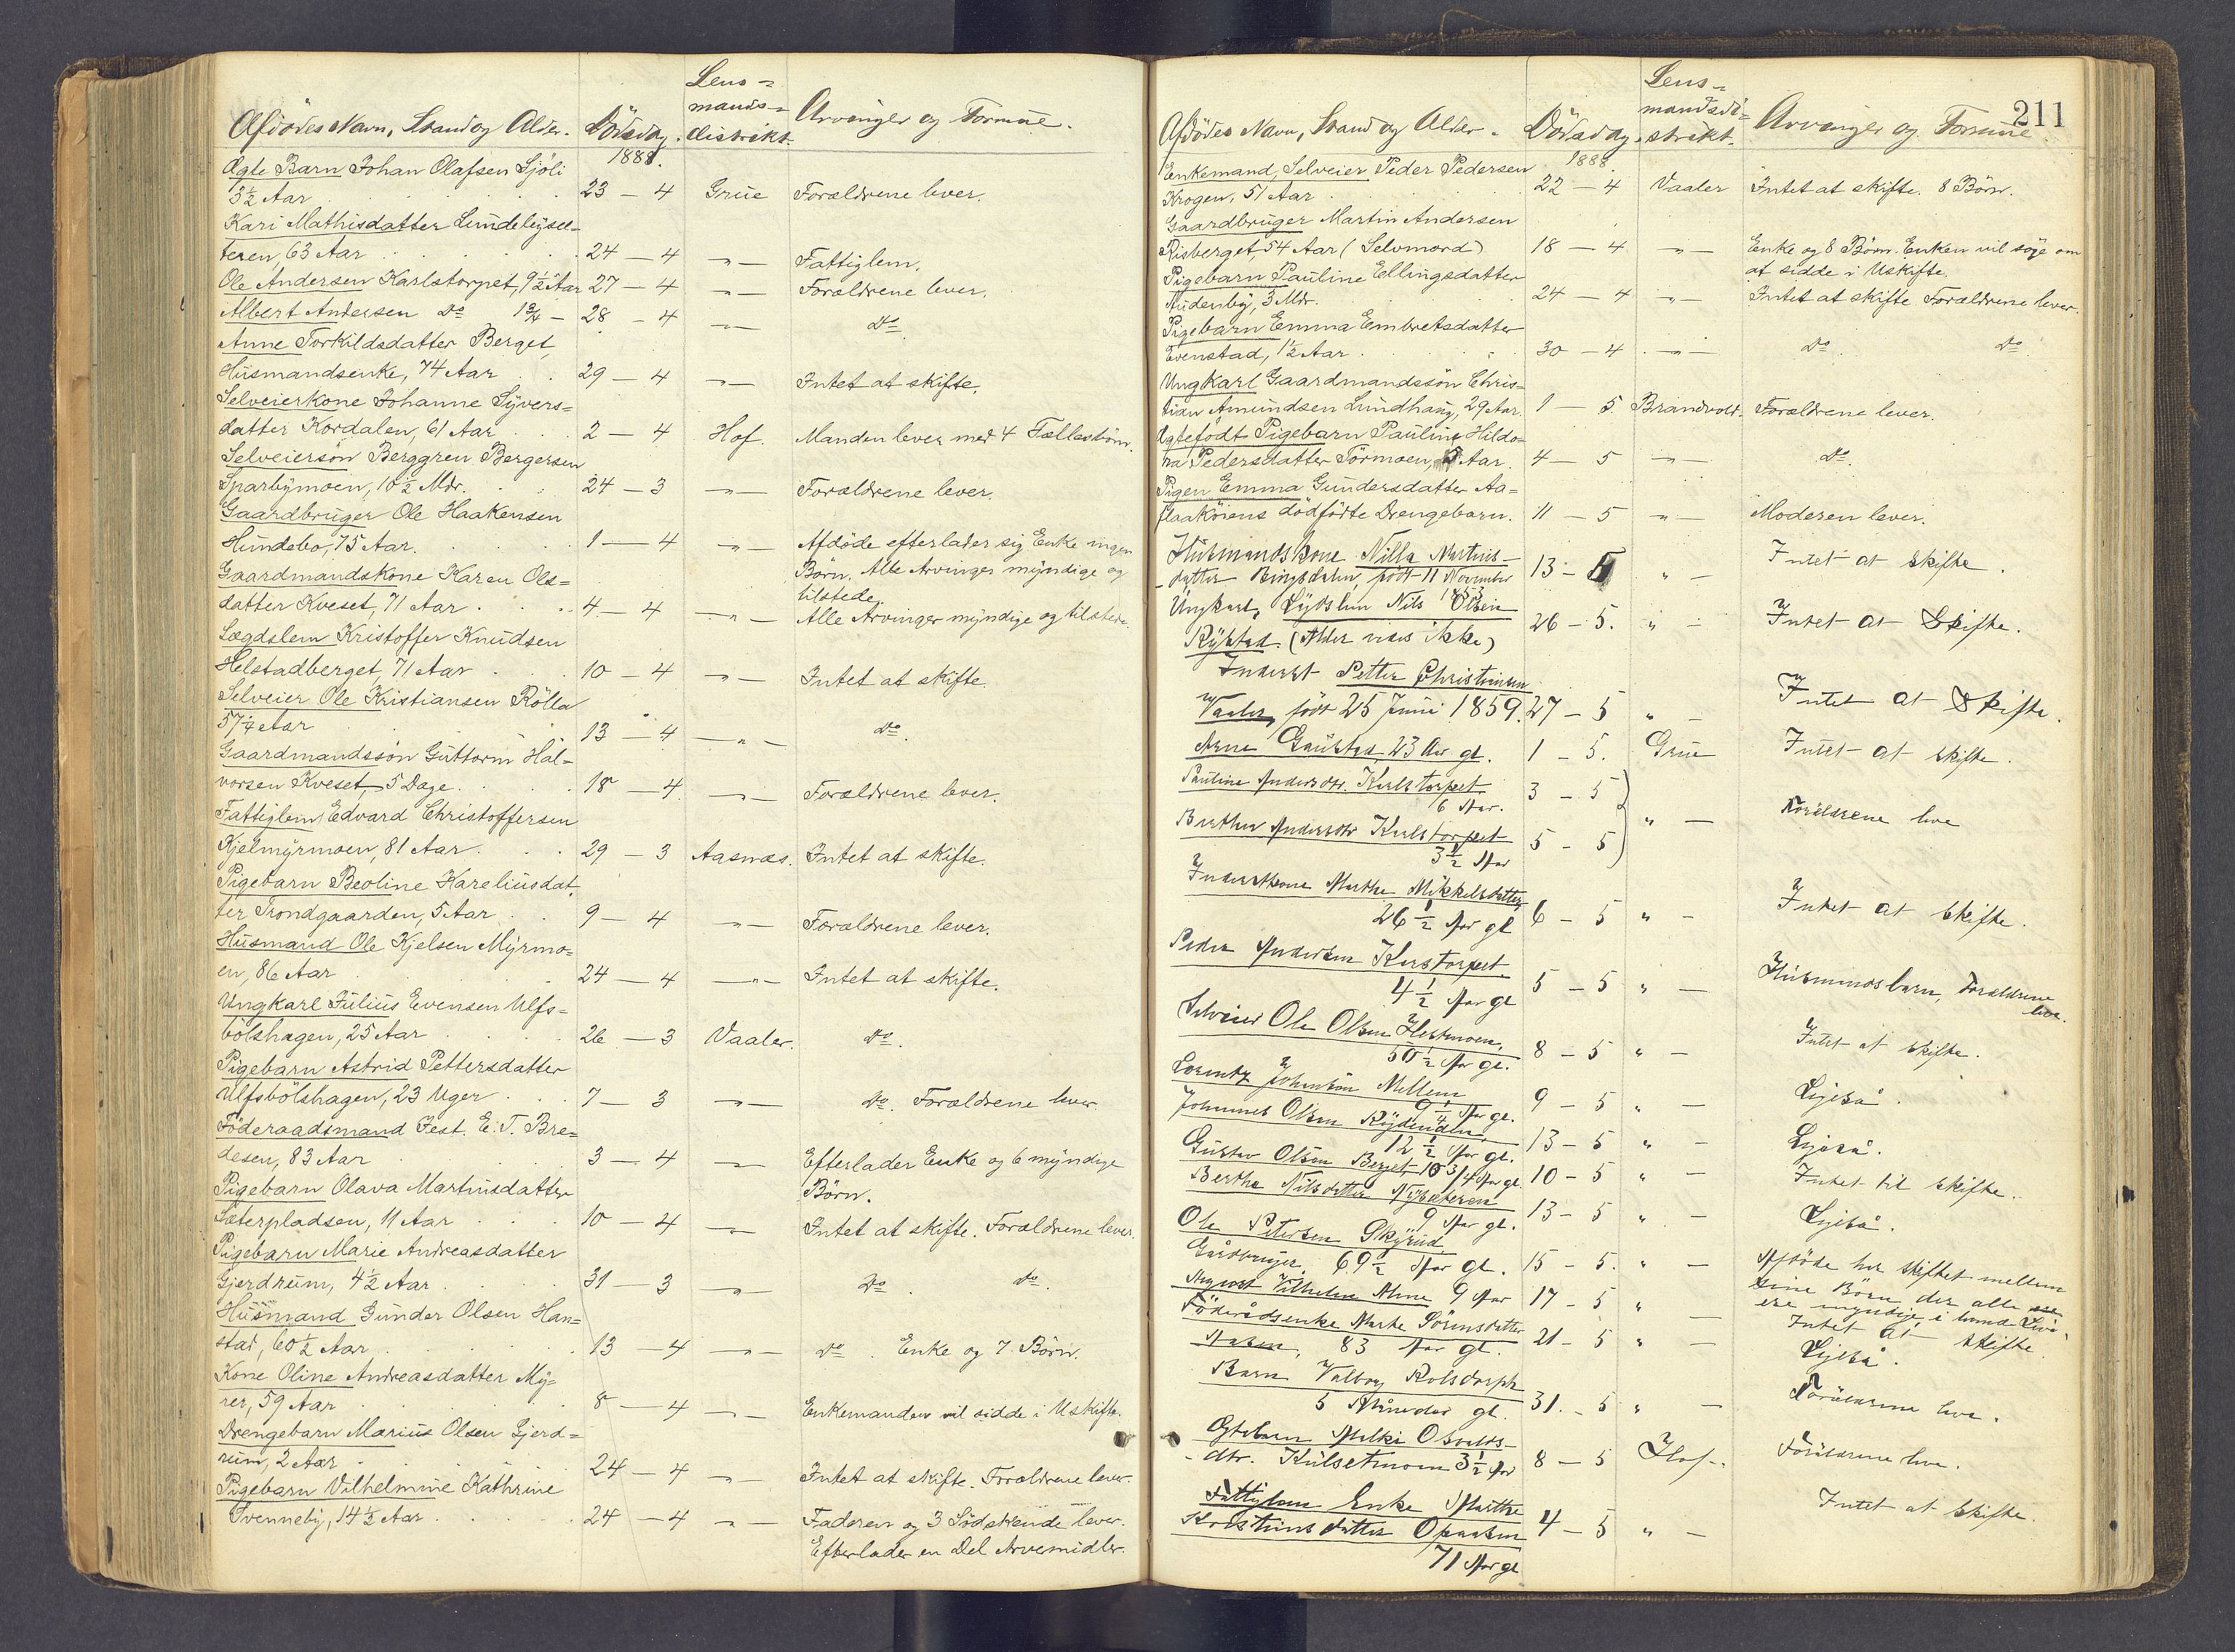 Lens-
mands-
Afdødes Navn, Stand og Alder. Dödsdag. distrikt. Arvinger og Formue.
1888.
Ægte Barn Johan Olafsen Sjöli
3½ Aar 23 - 4 Grue Forældrene lever.
Kari Mathisdatter Lundebysæ-
teren, 63 Aar 24 - 4 -"- Fattiglem.
Ole Andersen Karlstorpet, 9½ Aar 27 - 4 -"- Forældrene lever.
Albert Andersen do 1¾ - 28 - 4 -"- do
Anne Torkildsdatter Berget,
Husmandsenke, 74 Aar 29 - 4 -"- Intet at skifte.
Selveierkone Johanne Syvers=
datter Kordalen, 61 Aar 2 - 4 Hof. Manden lever med 4 Fællesbörn.
Selveiersön Berggren Bergersen
Sparbymoen, 10½ Mdr. 24 - 3 -"- Forældrene lever.
Gaardbruger Ole Haakensen
Hundebo, 75 Aar. 1 - 4 -"- Afdöde efterlader sig Enke ingen
Börn. Alle Arvinger myndige og
tilstede.
Gaardmandskone Karen Ols=
datter Kveset, 71 Aar 4 - 4 -"- Alle Arvinger myndige og tilstede.
Lægdslem Kristoffer Knudsen
Helstadberget, 71 Aar 10 - 4 -"- Intet at skifte.
Selveier Ole Kristiansen Rölla
57¼ Aar 13 - 4 -"- do.
Gaardmandssön Guttorm Hal=
vorsen Kveset, 5 Dage 18 - 4 -"- Forældrene lever.
Fattiglem Edvard Christoffersen
Kjelmyrmoen, 81 Aar 29 - 3 Aasnæs. Intet at skifte.
Pigebarn Beoline Kareliusdat
ter Trondgaarden, 5 Aar 9 - 4 -"- Forældrene lever.
Husmand Ole Kjelsen Myrmo=
en, 86 Aar 24 - 4 -"- Intet at skifte.
Ungkarl Julius Evensen Ulfs=
bölshagen, 25 Aar 26 - 3 Vaaler. do.
Pigebarn Astrid Pettersdatter
Ulfsbölshagen, 23 Uger 7 - 3 -"- do. Forældrene lever.
Föderaadsmand Fest. E. T. Bre=
desen, 83 Aar 3 - 4 -"- Efterlader Enke og 6 myndige
Börn.
Pigebarn Olava Martinusdatter
Sæterpladsen, 11 Aar 10 - 4 -"- Intet at skifte. Forældrene lever.
Pigebarn Marie Andreasdatter
Gjerdrum, 4½ Aar 31 - 3 -"- do. do.
Husmand Gunder Olsen Han=
stad, 60½ Aar 13 - 4 -"- do. Enke og 7 Börn.
Kone Oline Andreasdatter My=
rer, 59 Aar 8 - 4 -"- Enkemanden vil sidde i Uskifte.
Drengebarn Marius Olsen Gjerd=
rum, 2 Aar 24 - 4 -"- Intet at skifte. Forældrene lever.
Pigebarn Vilhelmine Kathrine
Svenneby, 14½ Aar 24 - 4 -"- Faderen og 3 Södskende lever.
Efterlader en Del Arvemidler.
211
Lens-
mandsdi-
Afdödes Navn, Stand og Alder. Dödsdag. strikt. Arvinger og Formue.
1888
Enkemand, Selveier Peder Pedersen
Krogen, 51 Aar 22 - 4 Vaaler Intet at skifte. 8 Börn.
Gaardbruger Martin Andersen
Risberget, 54 Aar (Selvmord) 18 - 4 -"- Enke og 8 Börn. Enken vil söge om
at sidde i Uskifte.
Pigebarn Pauline Ellingsdatter
Audenby, 3 Mdr. 24 - 4 -"- Intet at skifte Forældrene lever.
Pigebarn Emma Embretsdatter
Evenstad, 1½ Aar 30 - 4 -"- do. do.
Ungkarl Gaardmandssön Chris=
tian Amundsen Lundhaug, 29 Aar. 1 - 5. Brandvold. Forældrene lever.
Ægtefödt Pigebarn Pauline Hildo=
ra Pedersdatter Törmoen, Aar. 4 - 5 -"- do.
Pigen Emma Gundersdatter Aa=
flaakøiens dödfödte Drengebarn. 11 - 5 -"- Moderen lever.
Husmandskone Nilla Martins-
datter Bingsdalen, födt 11 November
1853 13 - 5 " - Intet at skifte.
Ungkarl, Lydslem Nils Olsen
Rykstad. (Alder vides ikke) 26 - 5. " - Intet at Skifte.
Inderst Petter Christiansen
Vaaler, födt 25 Juni 1859. 27 - 5 " - Intet at Skifte.
Arne Gaustad, 23 Aar gl. 1 - 5. Grue Intet at skifte.
Pauline Andersdtr. Karlstorpet
6 Aar. 3 - 5
Berthe Andersdtr Karlstorpet
3½ Aar 5 - 5 " - Forældrene leve
Inderstkone Marthe Mikkelsdatter
26½ Aar gl 6 - 5 " - Intet at skifte.
Peder Andersen Karstorpet
4½ Aar gl 5 - 5 " - Husmandsbarn, Forældrene
leve.
Selveier Ole Olsen Hestmoen,
50½ Aar gl. 8 - 5 " - Intet at skifte.
Lorentz Johansen Mellem
9¼ Aar gl. 9 - 5 " - Ligeså.
Johannes Olsen Röjdenden,
12½ Aar gl. 13 - 5 " - Ligeså.
Gustav Olsen Berget 10 3/4 Aar gl. 10 - 5 " - Intet til skifte.
Berthe Nilsdatter Nysæteren
9 Aar gl. 13 - 5 " - Ligeså.
Ole Petersen Skyrud
Gårdbruger, 69½ Aar gl. 15 - 5. " - Afdöde har skiftet mellem
sine Börn, der alle
ere myndige, i levende Live.
August Vilhelm Alme 9 Aar 17 - 5 " - Intet at skifte.
Föderådsenke Marthe Sörensdatter
83 Aar gl. 21 - 5 " - Ligeså.
Barn Valborg Rolsdorph
5 Måneder gl. 31. - 5 " - Forældrene leve.
Ægtebarn Milki Osvalds-
dtr. Kulsetmoen 3½ Aar 8 - 5 Hof. Forældrene leve.
Fattiglem Enke Marthe
Kristiansdatter Opaasen
71 Aar gl 4 - 5 " - Intet at skifte.